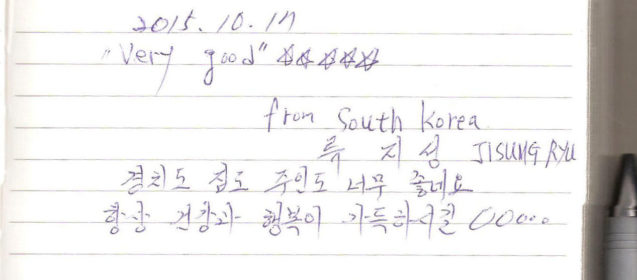 2015.10.17
"Very good" ☆☆☆☆☆
from South Korea
류 지 성 JISUNG RYU
경치도 집도 주인도 너무 좋네요
항상 건강과 행복이 가득하시길 ○○...